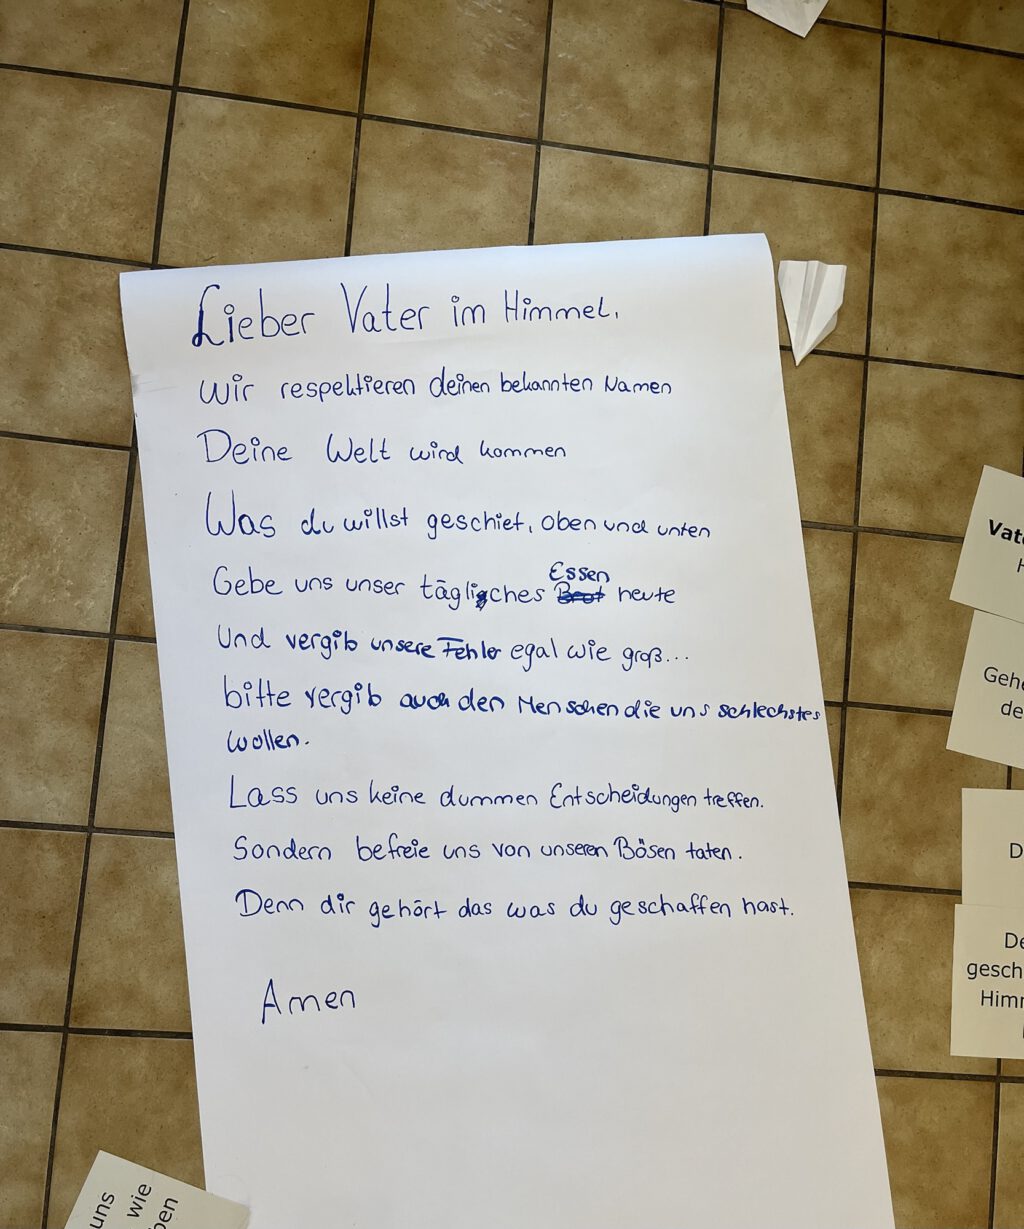 Lieber Vater im Himmel,
Wir respektieren deinen bekannten Namen
Deine Welt wird kommen
Was du willst geschiet, oben und unten
Gebe uns unser tägliches Essen heute
Und vergib unsere Fehler egal wie groß...
bitte vergib auch den Menschen die uns schlechstes
wollen.
Lass uns keine dummen Entscheidungen treffen.
Sondern befreie uns von unseren Bösen taten.
Denn dir gehört das was du geschaffen hast.
Amen
Vate
H
Gehe
de
D
De
gesch
Himm
uns
wie
ben